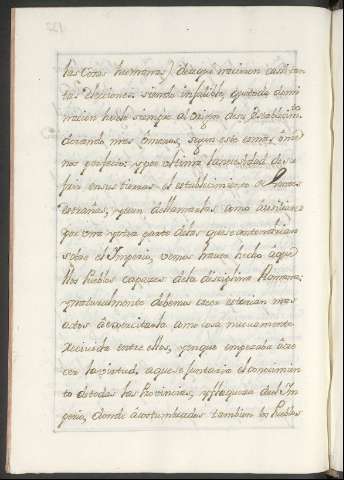 las Cosas humanas) de aqui nacieron casi tan
tas elecciones; siendo infalible, q̃ toda domi
nacion huele siempre al origen de su establecim.to
durando mas, ó menos, segun este es mas, ó me
nos perfecto: y por ultimo la necesidad de su
frir en sus tierras el establecimiento de
estrañas, y aun de llamarlas como Auxiliares
por una y otra parte de los que contendian
sobre el Imperio, vemos haver hecho á aque
llos Pueblos capaces de la disciplina Romana;
y naturalmente debemos creer estarian mas
aptos á exercitarla como cosa nuevamente
recivida entre ellos, y en que empezaba á cre
cer la virtud, a que se juntaria el conocimien
to de todas las Provincias, y flaqueza del Im
perio, donde acostumbrados tambien los Pueblos